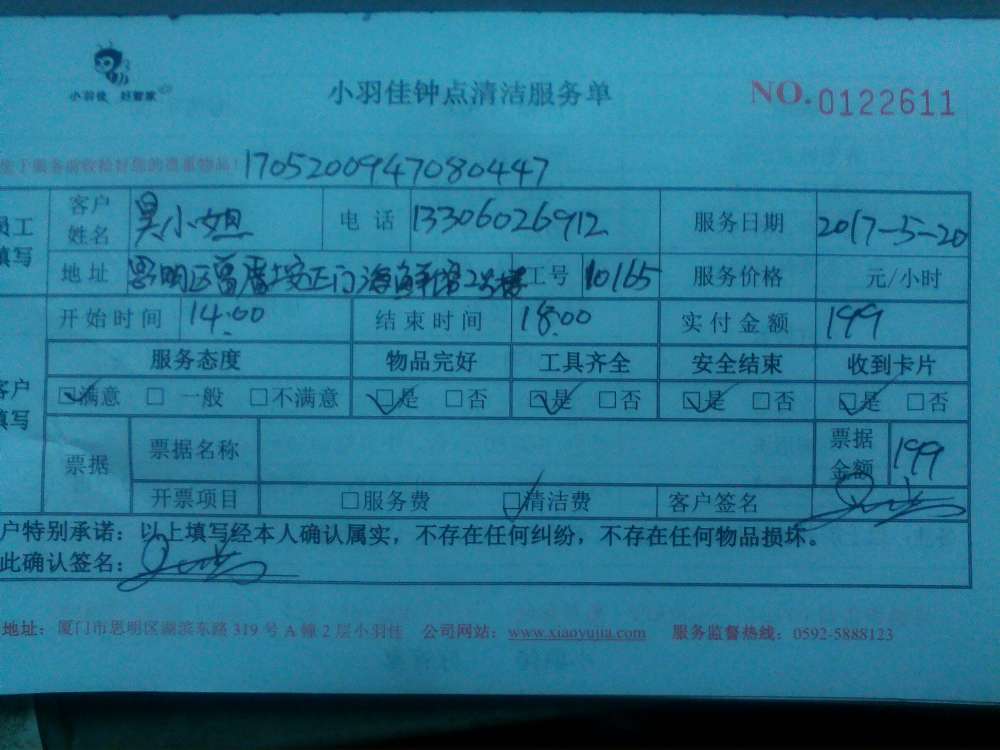 小羽佳 好管家
小羽佳钟点清洁服务单
NO.0122611
服务前收拾好您的贵重物品！1705200947080447
员工填写
客户姓名 吴小姐 电话 13306026912 服务日期 2017-5-20
地址 思明区 正门海鲜 2号楼 工号 10165 服务价格 元/小时
开始时间 14:00 结束时间 18:00 实付金额 199
客户填写
服务态度 物品完好 工具齐全 安全结束 收到卡片
☑满意 □一般 □不满意 ☑是 □否 ☑是 □否 ☑是 □否 ☑是 □否
票据 票据名称 票据金额 199
开票项目 □服务费 ☑清洁费 客户签名
户特别承诺：以上填写经本人确认属实，不存在任何纠纷，不存在任何物品损坏。
此确认签名：
地址：厦门市思明区湖滨东路319号A幢2层小羽佳 公司网站：www.xiaoyujia.com 服务监督热线：0592-5888123